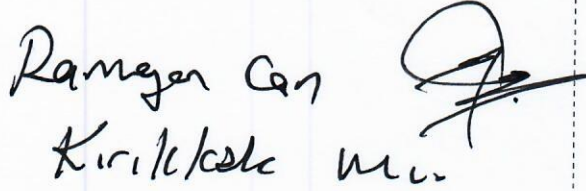 Ramazan Can
Kırıkkale Mv.